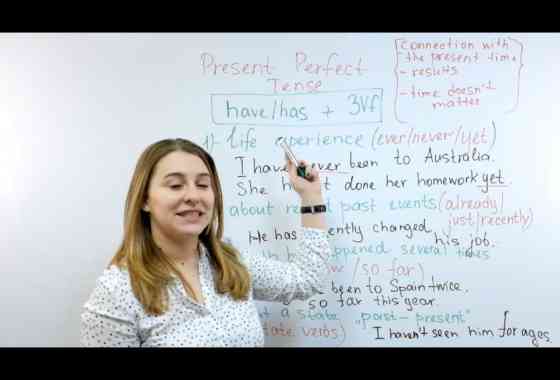 Present Perfect
Tense
have/has + 3Vf
connection with
the present time
- results
- time doesn't
matter
1) life experience (ever/never/yet)
I have never been to Australia.
She done her homework yet.
about past events (already/
just/recently)
He has changed
his job.
several times
/so far)
been to Spain twice.
so far this year.
a state "past-present"
verbs)
I haven't seen him for ages.